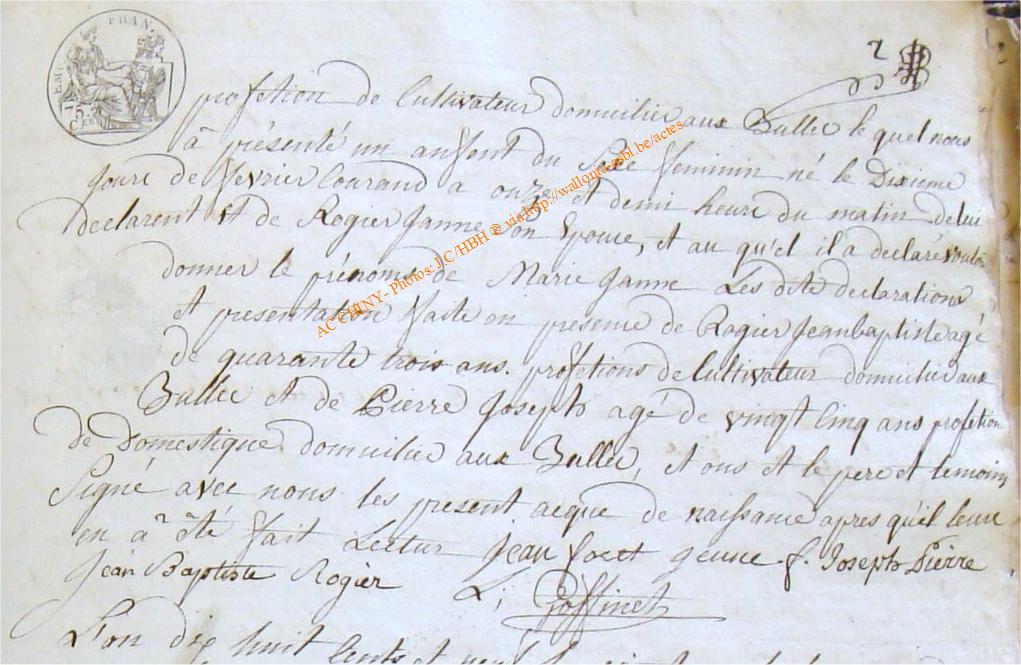 EMP. FRAN.
75
CEN.
2
profetion de Cultivateur domicilier aux Bullee le quel nous
à présenté un anfent du Sexe feminin né le Dixieme
jours de fevrier Courand a onze et demi heure du matin de lui
declarent et de Rogier Janne son Epouse, et au qu'el il a declaré vouloir
donner le prénoms de Marie Janne Les dite declarations
et presentation faite en presense de Rogier Jeanbaptiste agé
de quarante trois ans. profetions de Cultivateur domicilier aux
Bullee et de Pierre Joseph agé de vingt Cinq ans profetion
de Domestique domicilier aux Bullee, et ons et le pere et temoins
Signé avec nous les present acque de naissance apres qu'il leure
en a été fait Lectur Jean foret jeune f. Joseph Pierre
Jean Baptiste Rogier L. Goffinet
L'on dix huit Cents et neuf
AC CHINY - Photos: J.C/HBH @ via http://wallonica.sbl.be/actes